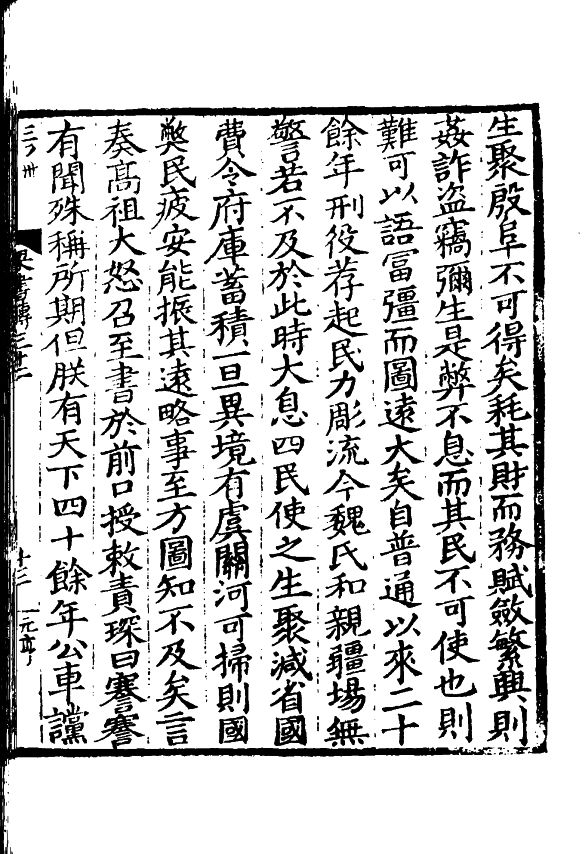 生聚殷阜不可得矣耗其財而務賦斂繁興則
姦詐盗竊彌生是弊不息而其民不可使也則
難可以語冨彊而圖遠大矣自普通以來二十
餘年刑役荐起民力彫流今魏氏和親疆埸無
警若不及於此時大息四民使之生聚減省國
費令府庫蓄積一旦異境有虞關河可掃則國
獘民疲安能振其遠略事至方圖知不及矣言
奏髙祖大怒召至書於前口授敕責琛曰謇謇
有聞殊稱所期但朕有天下四十餘年公車讜
梁書傳三十二
十三